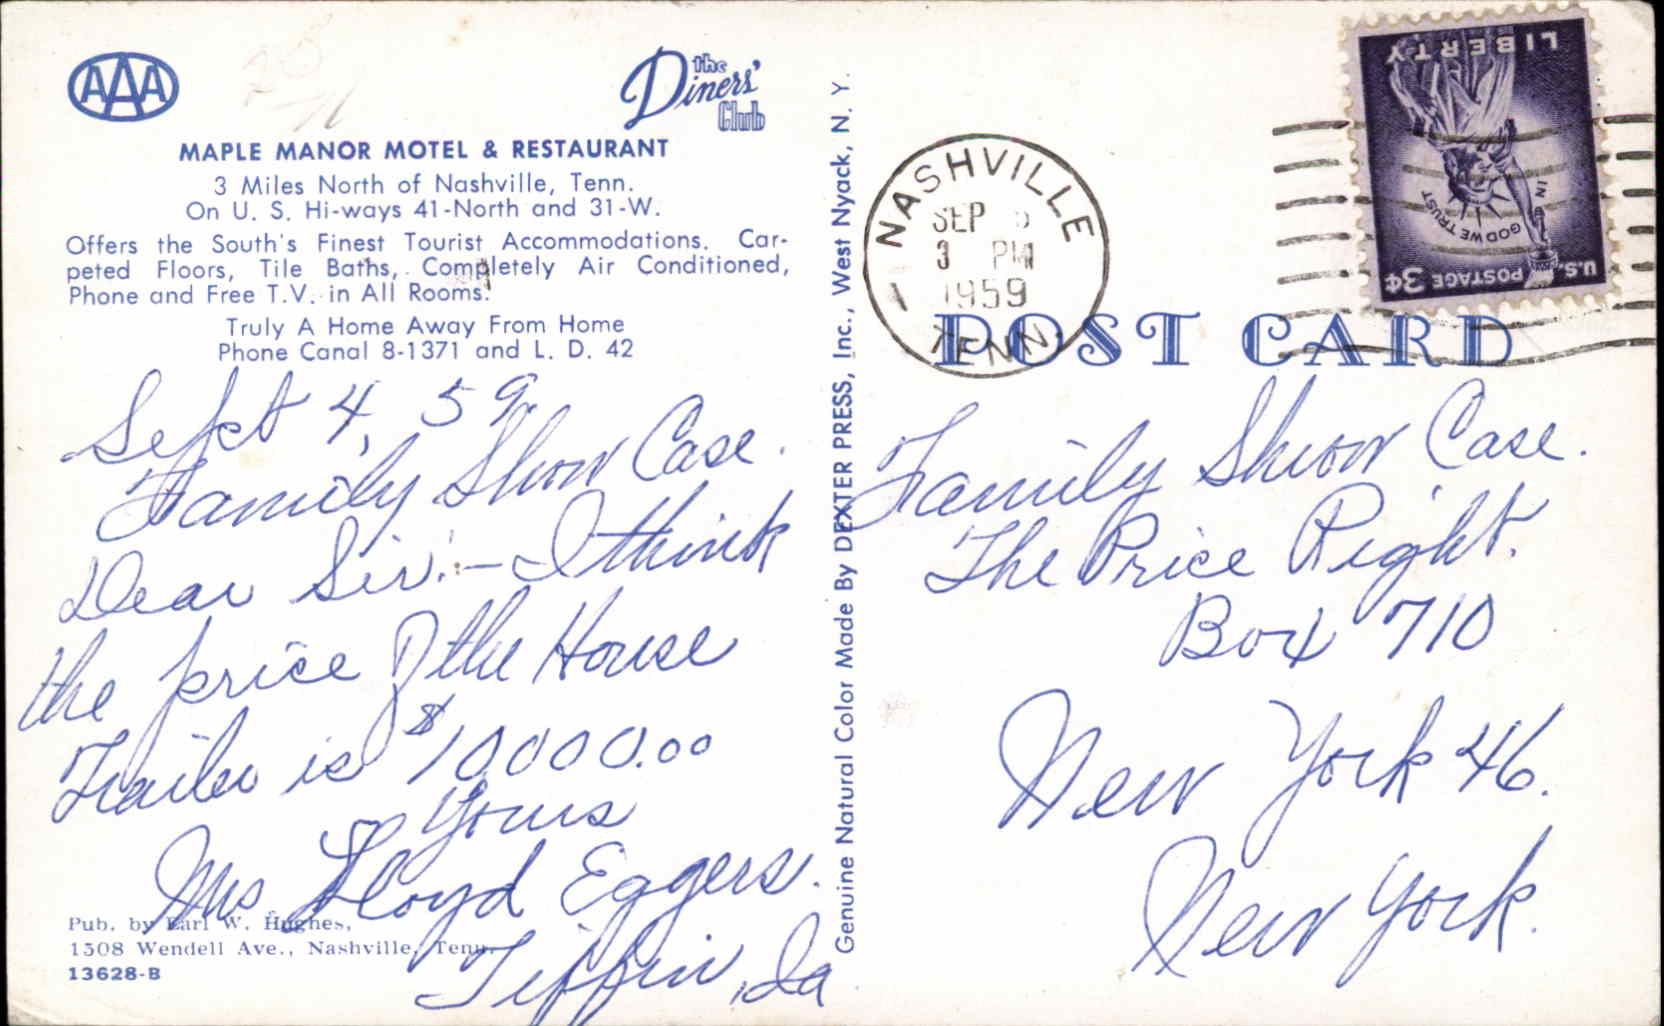 AAA
the
Diners'
Club
MAPLE MANOR MOTEL & RESTAURANT
3 Miles North of Nashville, Tenn.
On U. S. Hi-ways 41-North and 31-W.
Offers the South's Finest Tourist Accommodations. Car-
peted Floors, Tile Baths, Completely Air Conditioned,
Phone and Free T.V. in All Rooms.
Truly A Home Away From Home
Phone Canal 8-1371 and L. D. 42
Sept 4, 59
Family Show Case.
Dear Sir:— I think
the price of the House
Trailer is $10000.00
Yours
Mrs Lloyd Eggers.
Tiffin, Ia
Pub. by Earl W. Hughes,
1508 Wendell Ave., Nashville, Tenn.
13628-B
Genuine Natural Color Made By DEXTER PRESS, Inc., West Nyack, N. Y.
NASHVILLE
SEP
3 PM
1959
TENN.
LIBERTY
IN GOD WE TRUST
U.S. POSTAGE 3¢
POST CARD
Family Show Case.
The Price Right.
Box 710
New York 46.
New York.